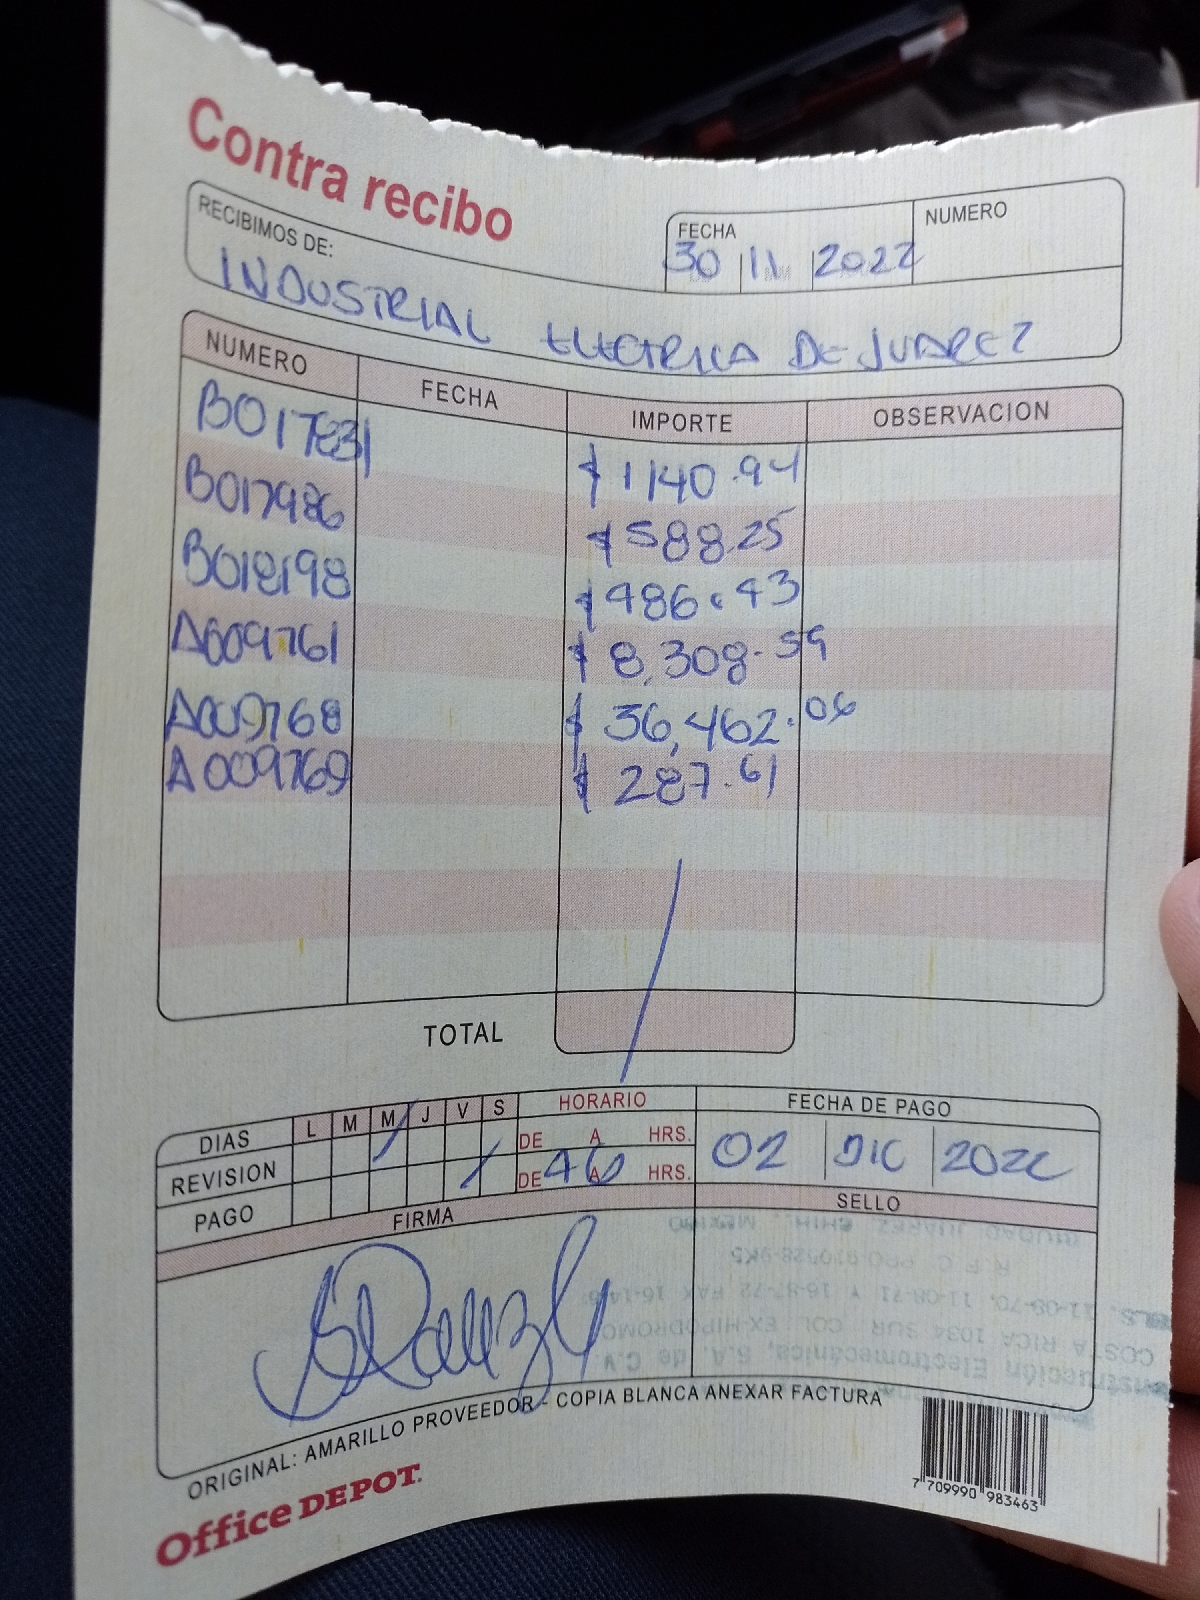 Contra recibo
RECIBIMOS DE:
FECHA
NUMERO
30 11 2022
INDUSTRIAL ELECTRICA DE JUAREZ
NUMERO FECHA IMPORTE OBSERVACION
B017831 $ 1140.94
B017986 $ 588.25
B018198 $ 486.43
A009761 $ 8,308.59
A009768 $ 36,462.06
A009769 $ 287.61
TOTAL
DIAS L M M J V S HORARIO FECHA DE PAGO
REVISION DE A HRS. 02 DIC 2022
PAGO DE 4 A 6 HRS.
FIRMA SELLO
CIUDAD JUAREZ CHIH., MEXICO
COSTA RICA 1034 SUR COL. EX-HIPODROMO
Construcción Electromecánica, S.A. de C.V.
ORIGINAL: AMARILLO PROVEEDOR - COPIA BLANCA ANEXAR FACTURA
Office DEPOT.
7 709990 983463